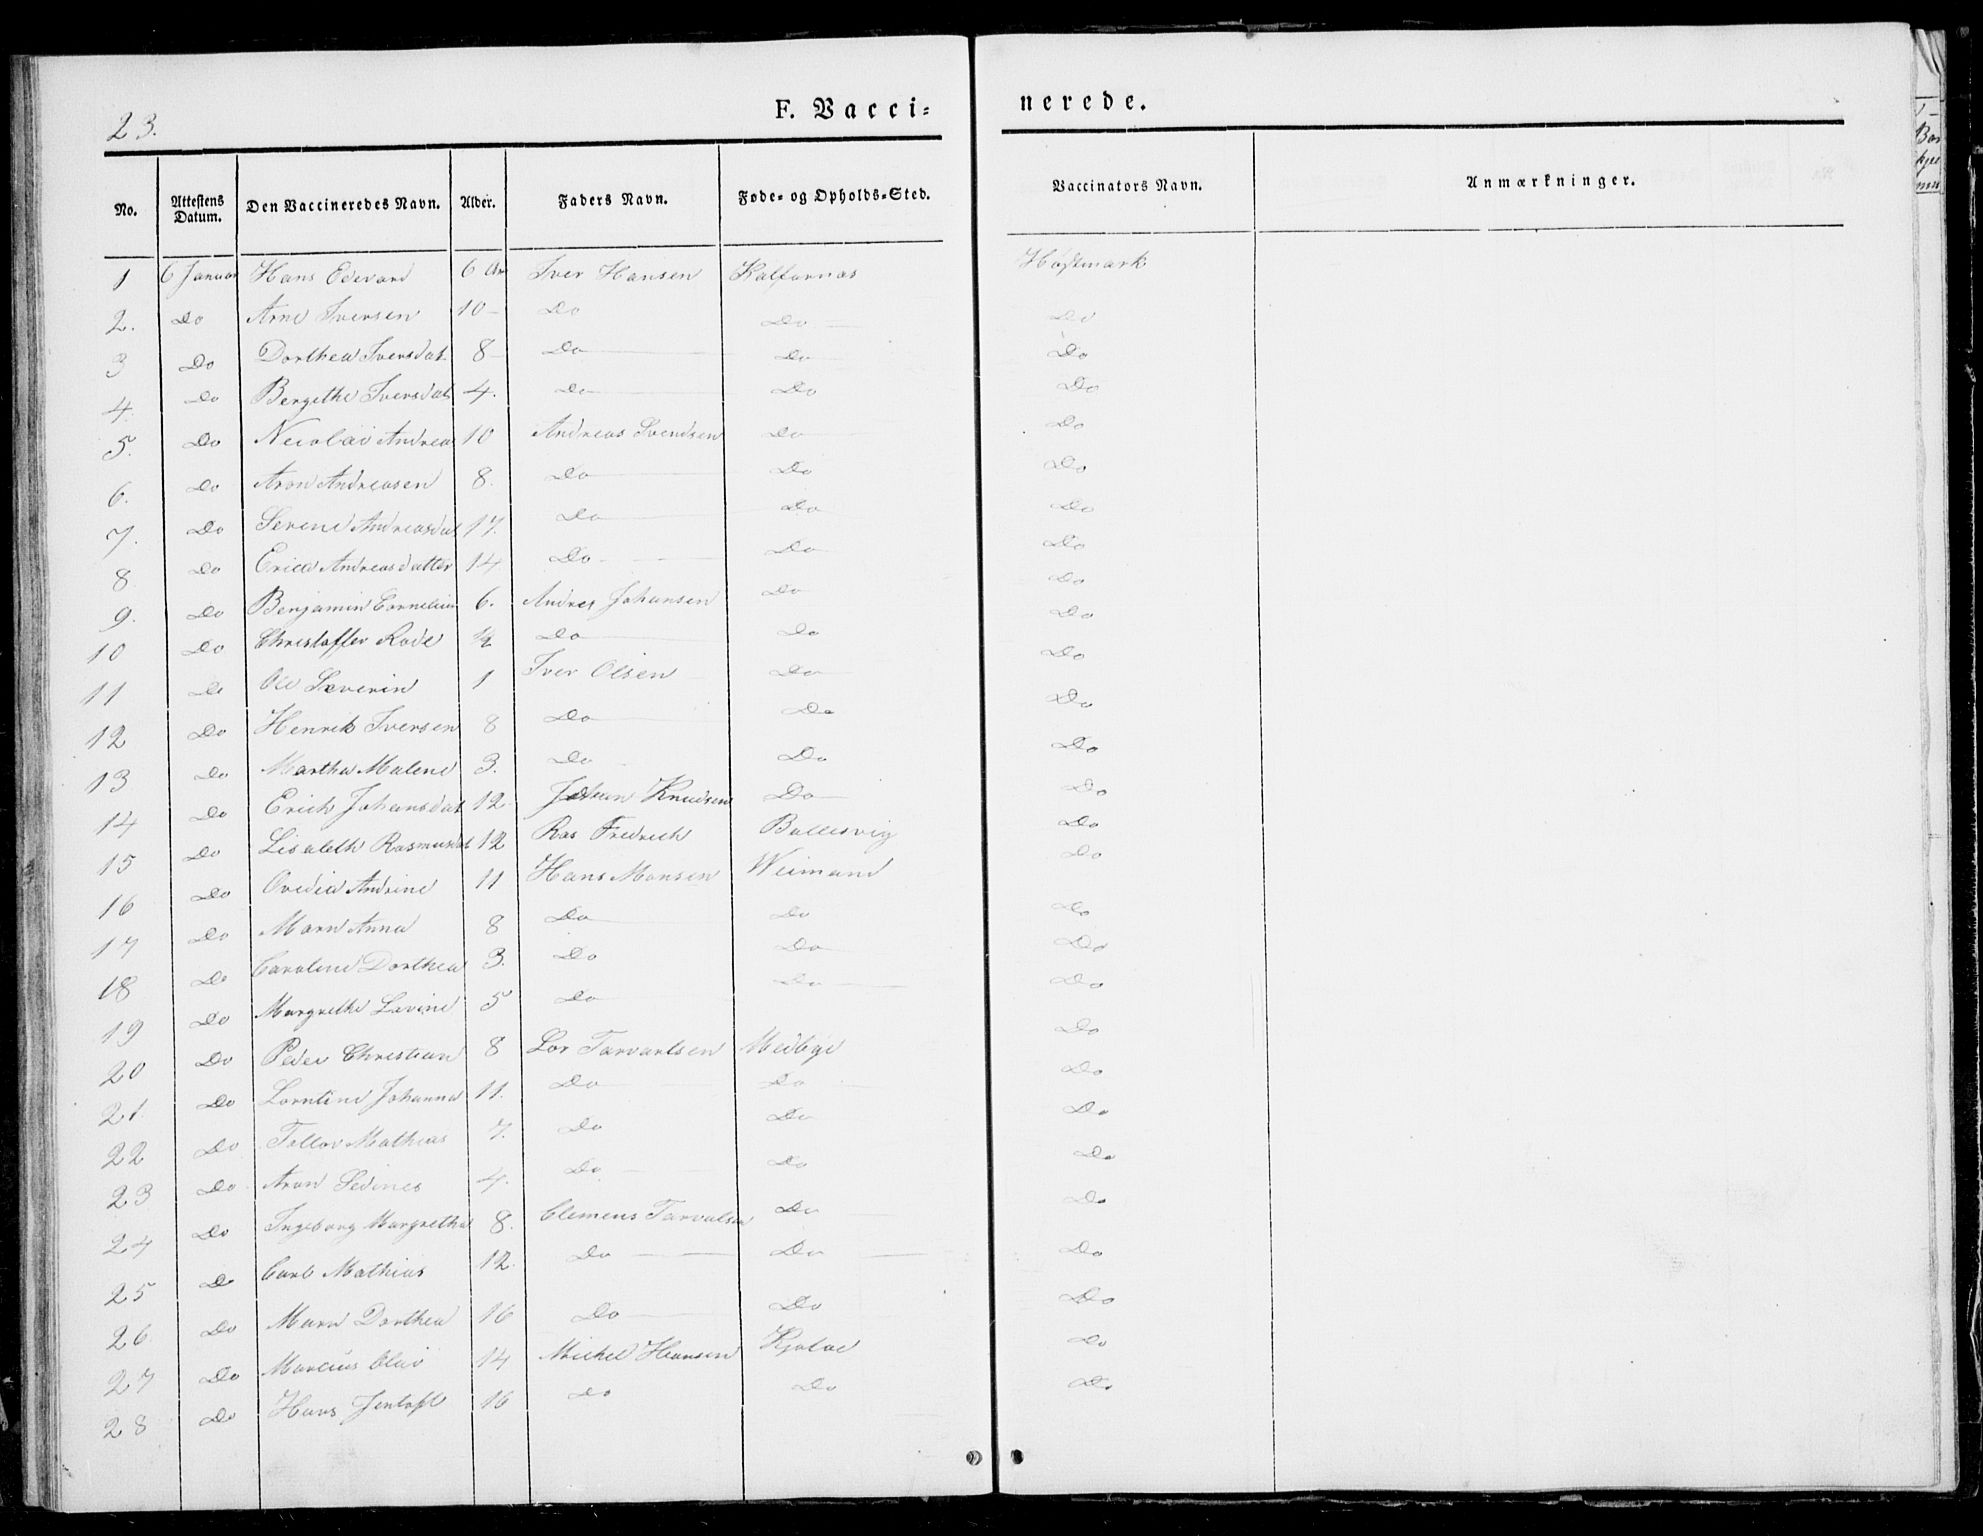 23.
F. Vacci=
nerede.
No. Attestens Datum. Den Vaccineredes Navn. Alder. Faders Navn. Føde- og Opholds-Sted. Vaccinators Navn. Anmærkninger.
1 6 Januar Hans Edevard 6 Aar Iver Hansen Kalfarnas Høstmark
2. Do Arne Iversen 10 Do Do Do
3 Do Dorthea Iversdat 8 Do Do Do
4. Do Bergithe Iversdat 4. Do Do Do
5. Do Nicolai Andreas 10 Andreas Svendsen Do Do
6. Do Aron Andreasen 8. Do Do Do
7. Do Serene Andreasdat 17. Do Do Do
8. Do Erica Andreasdatter 14 Do Do Do
9. Do Benjamin Cornelius 6. Andres Johansen Do Do
10 Do Christoffer Rode 1/2 Do Do Do
11 Do Ole Severin 1 Iver Olsen Do Do
12 Do Henrik Iversen 8 Do Do Do
13 Do Martha Malene 3. Do Do Do
14 Do Erich Johansdat 12 Johan Knudsen Do Do
15 Do Lisabeth Rasmusdat 12 Ras Fredrich Ballesvig Do
16 Do Ovedia Andrine 11 Hans Monsen Weimand Do
17 Do Marn Anna 8 Do Do Do
18 Do Caroline Dorthea 3. Do Do Do
19 Do Margrethe Lovine 5 Do Do Do
20 Do Peder Christian 8 Lor Tarvaldsen Medbye Do
21. Do Lorntine Johanna 11. Do Do Do
22 Do Tollov Mathias 7. Do Do Do
23 Do Aron Sedines 4. Do Do Do
24 Do Ingeborg Margretha 8. Clemens Tarvalsen Do Do
25 Do Carl Mathias 12. Do Do Do
26. Do Marn Dorthea 16 Do Do Do
27 Do Marcus Clai 14 Michel Hansen Kjoløe Do
28 Do Hans Jentoft 16 Do Do Do